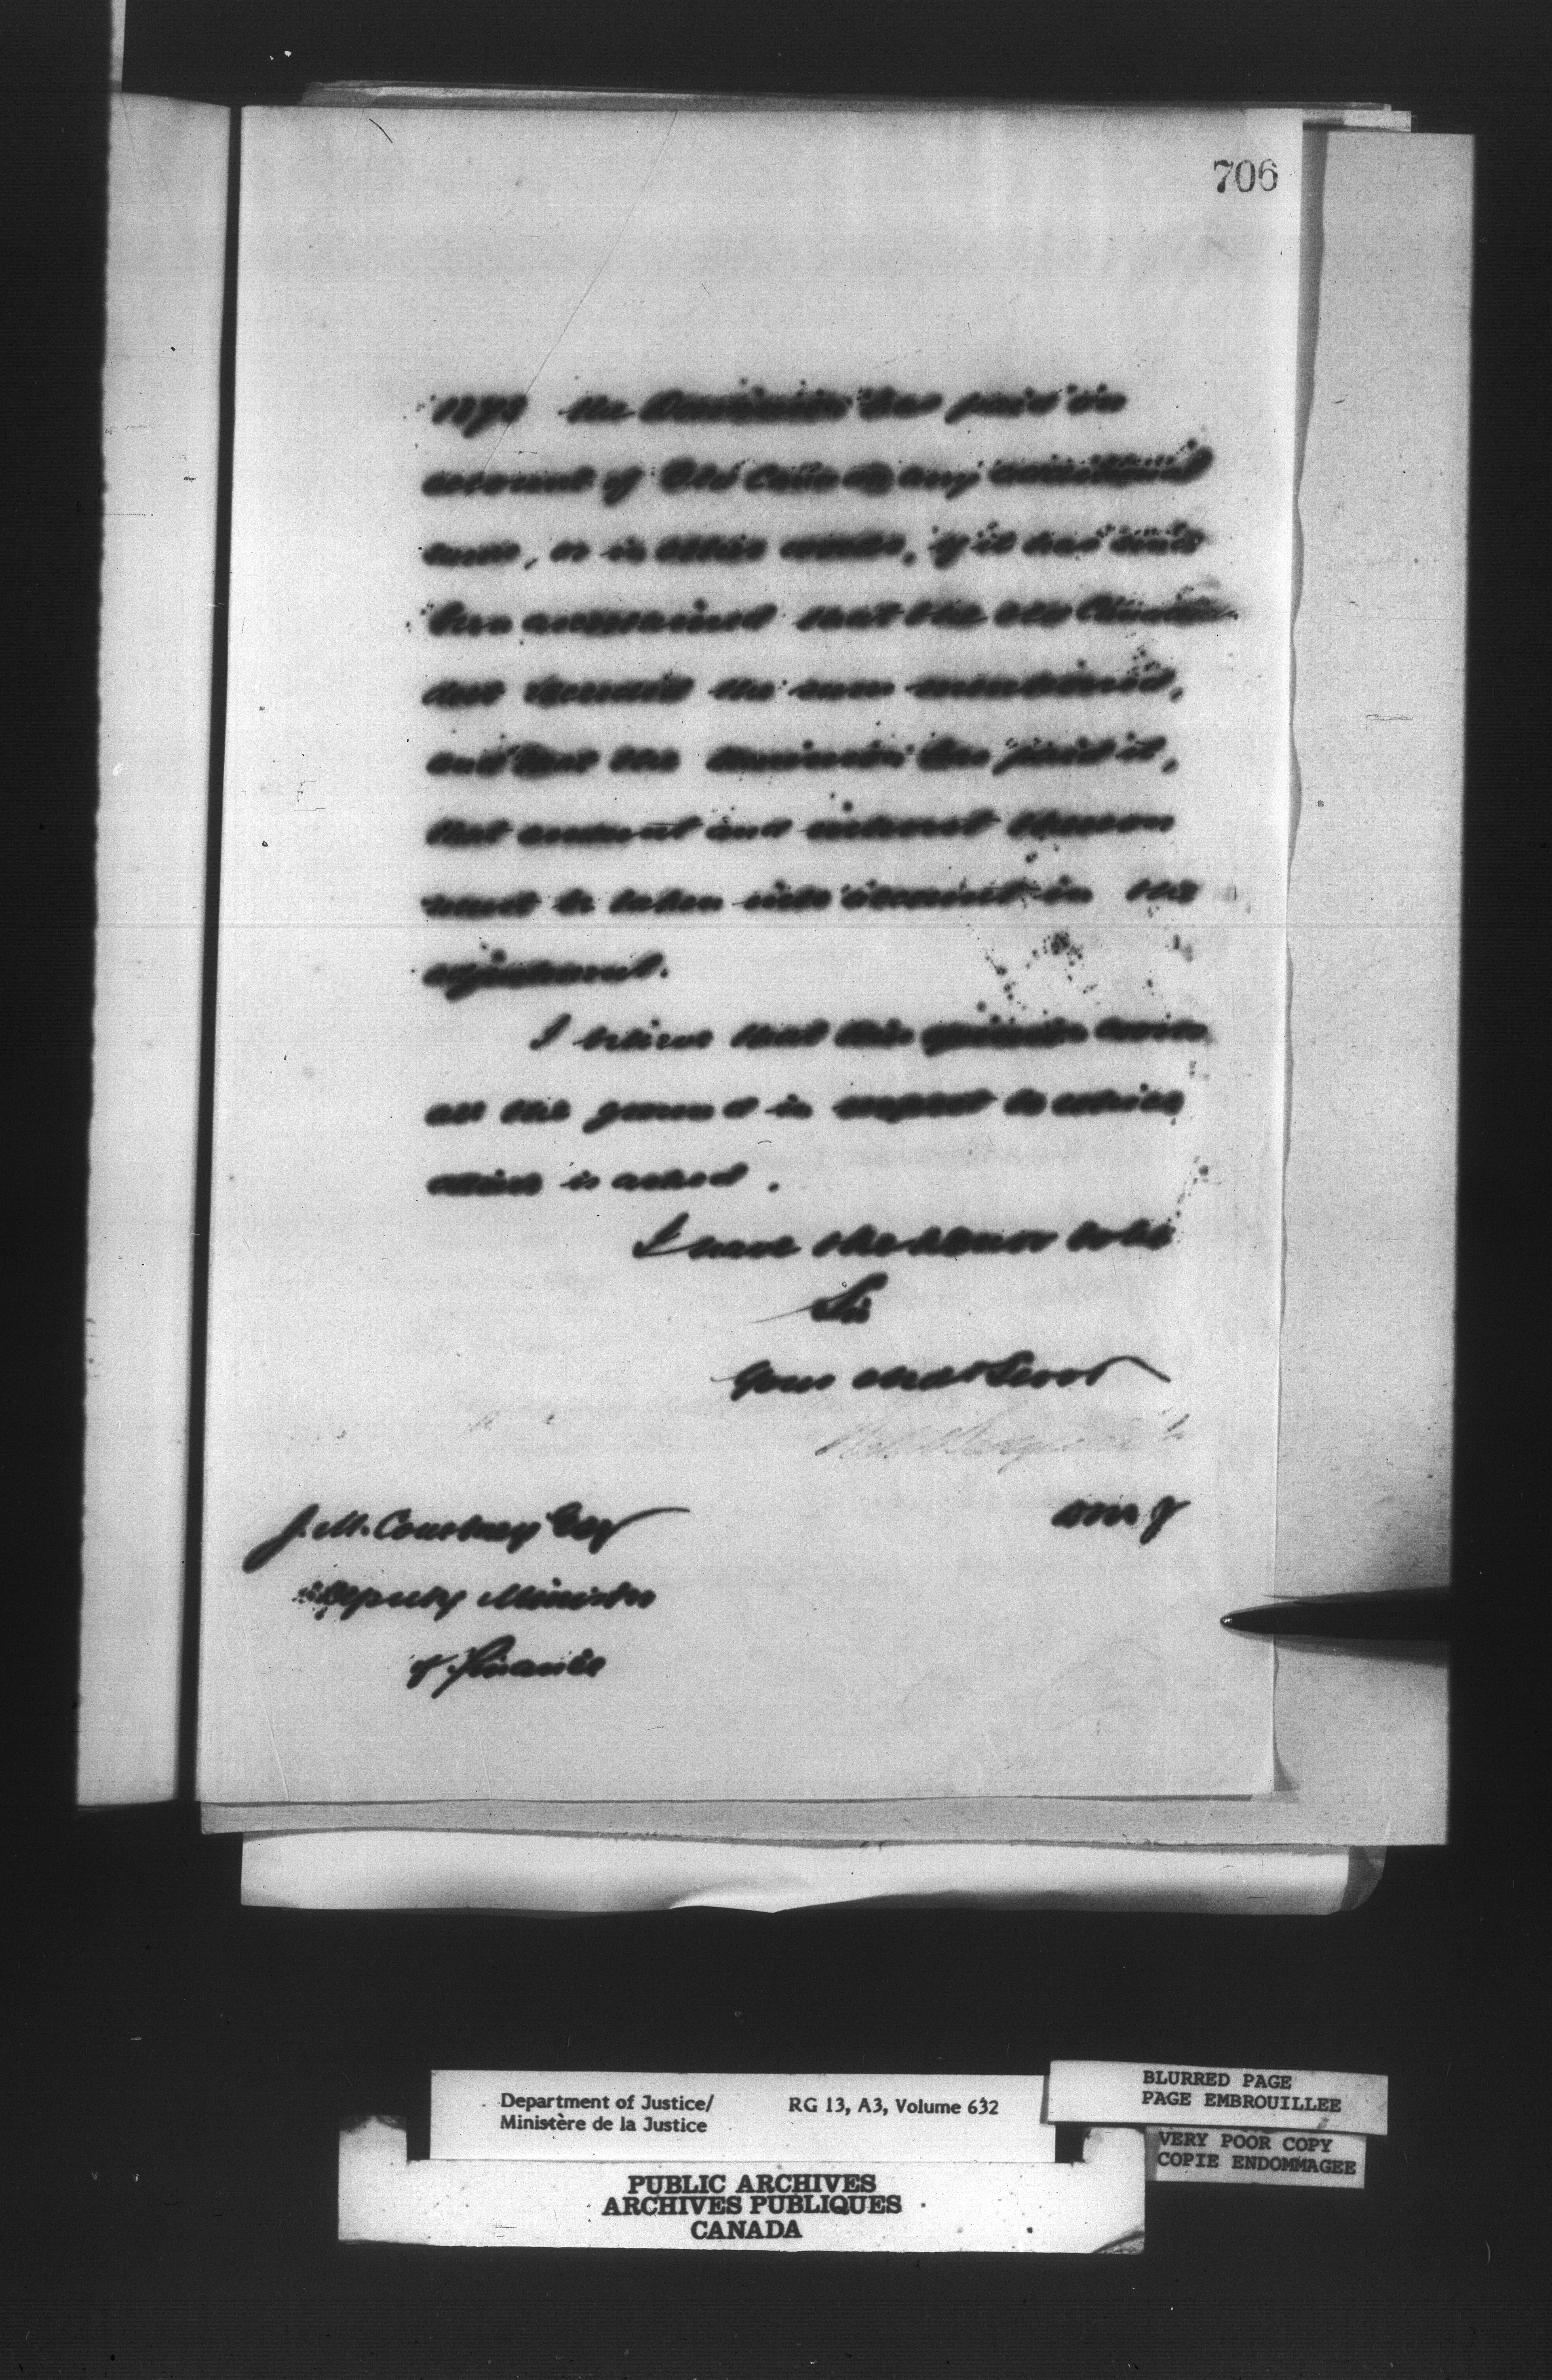 706
1873 the Dominion has paid on
account of Old Canada any additional
sum, or in other words, if it has since
been ascertained that the old Canada
debt exceeded the sum mentioned,
and that the Dominion has paid it,
that amount and interest thereon
must be taken into account in the
adjustment.
I believe that this opinion covers
all the ground in respect to which
advice is asked.
I have the honor to be
Sir
Your obedt Servt
J. M. Courtney Esq
Deputy Minister
of Finance
Department of Justice/
Ministère de la Justice
RG 13, A3, Volume 632
BLURRED PAGE
PAGE EMBROUILLEE
VERY POOR COPY
COPIE ENDOMMAGEE
PUBLIC ARCHIVES
ARCHIVES PUBLIQUES
CANADA